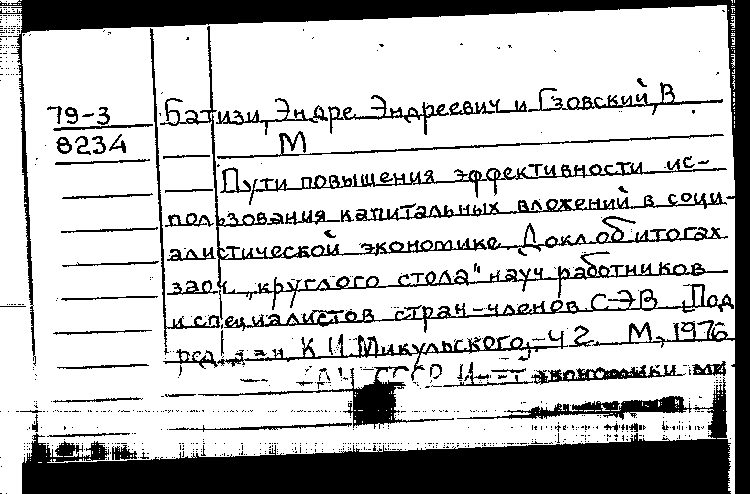 79-3 Батизи, Эндре Эндреевич и Гзовский, В
8234 М
Пути повышения эффективности ис-
пользования капитальных вложений в соци-
алистической экономике Докл об итогах
заоч. „круглого стола" науч работников
и специалистов стран-членов СЭВ Под
ред. К И Микульского, -Ч 2. М, 1976
(АН СССР Ин-т экономики ми-